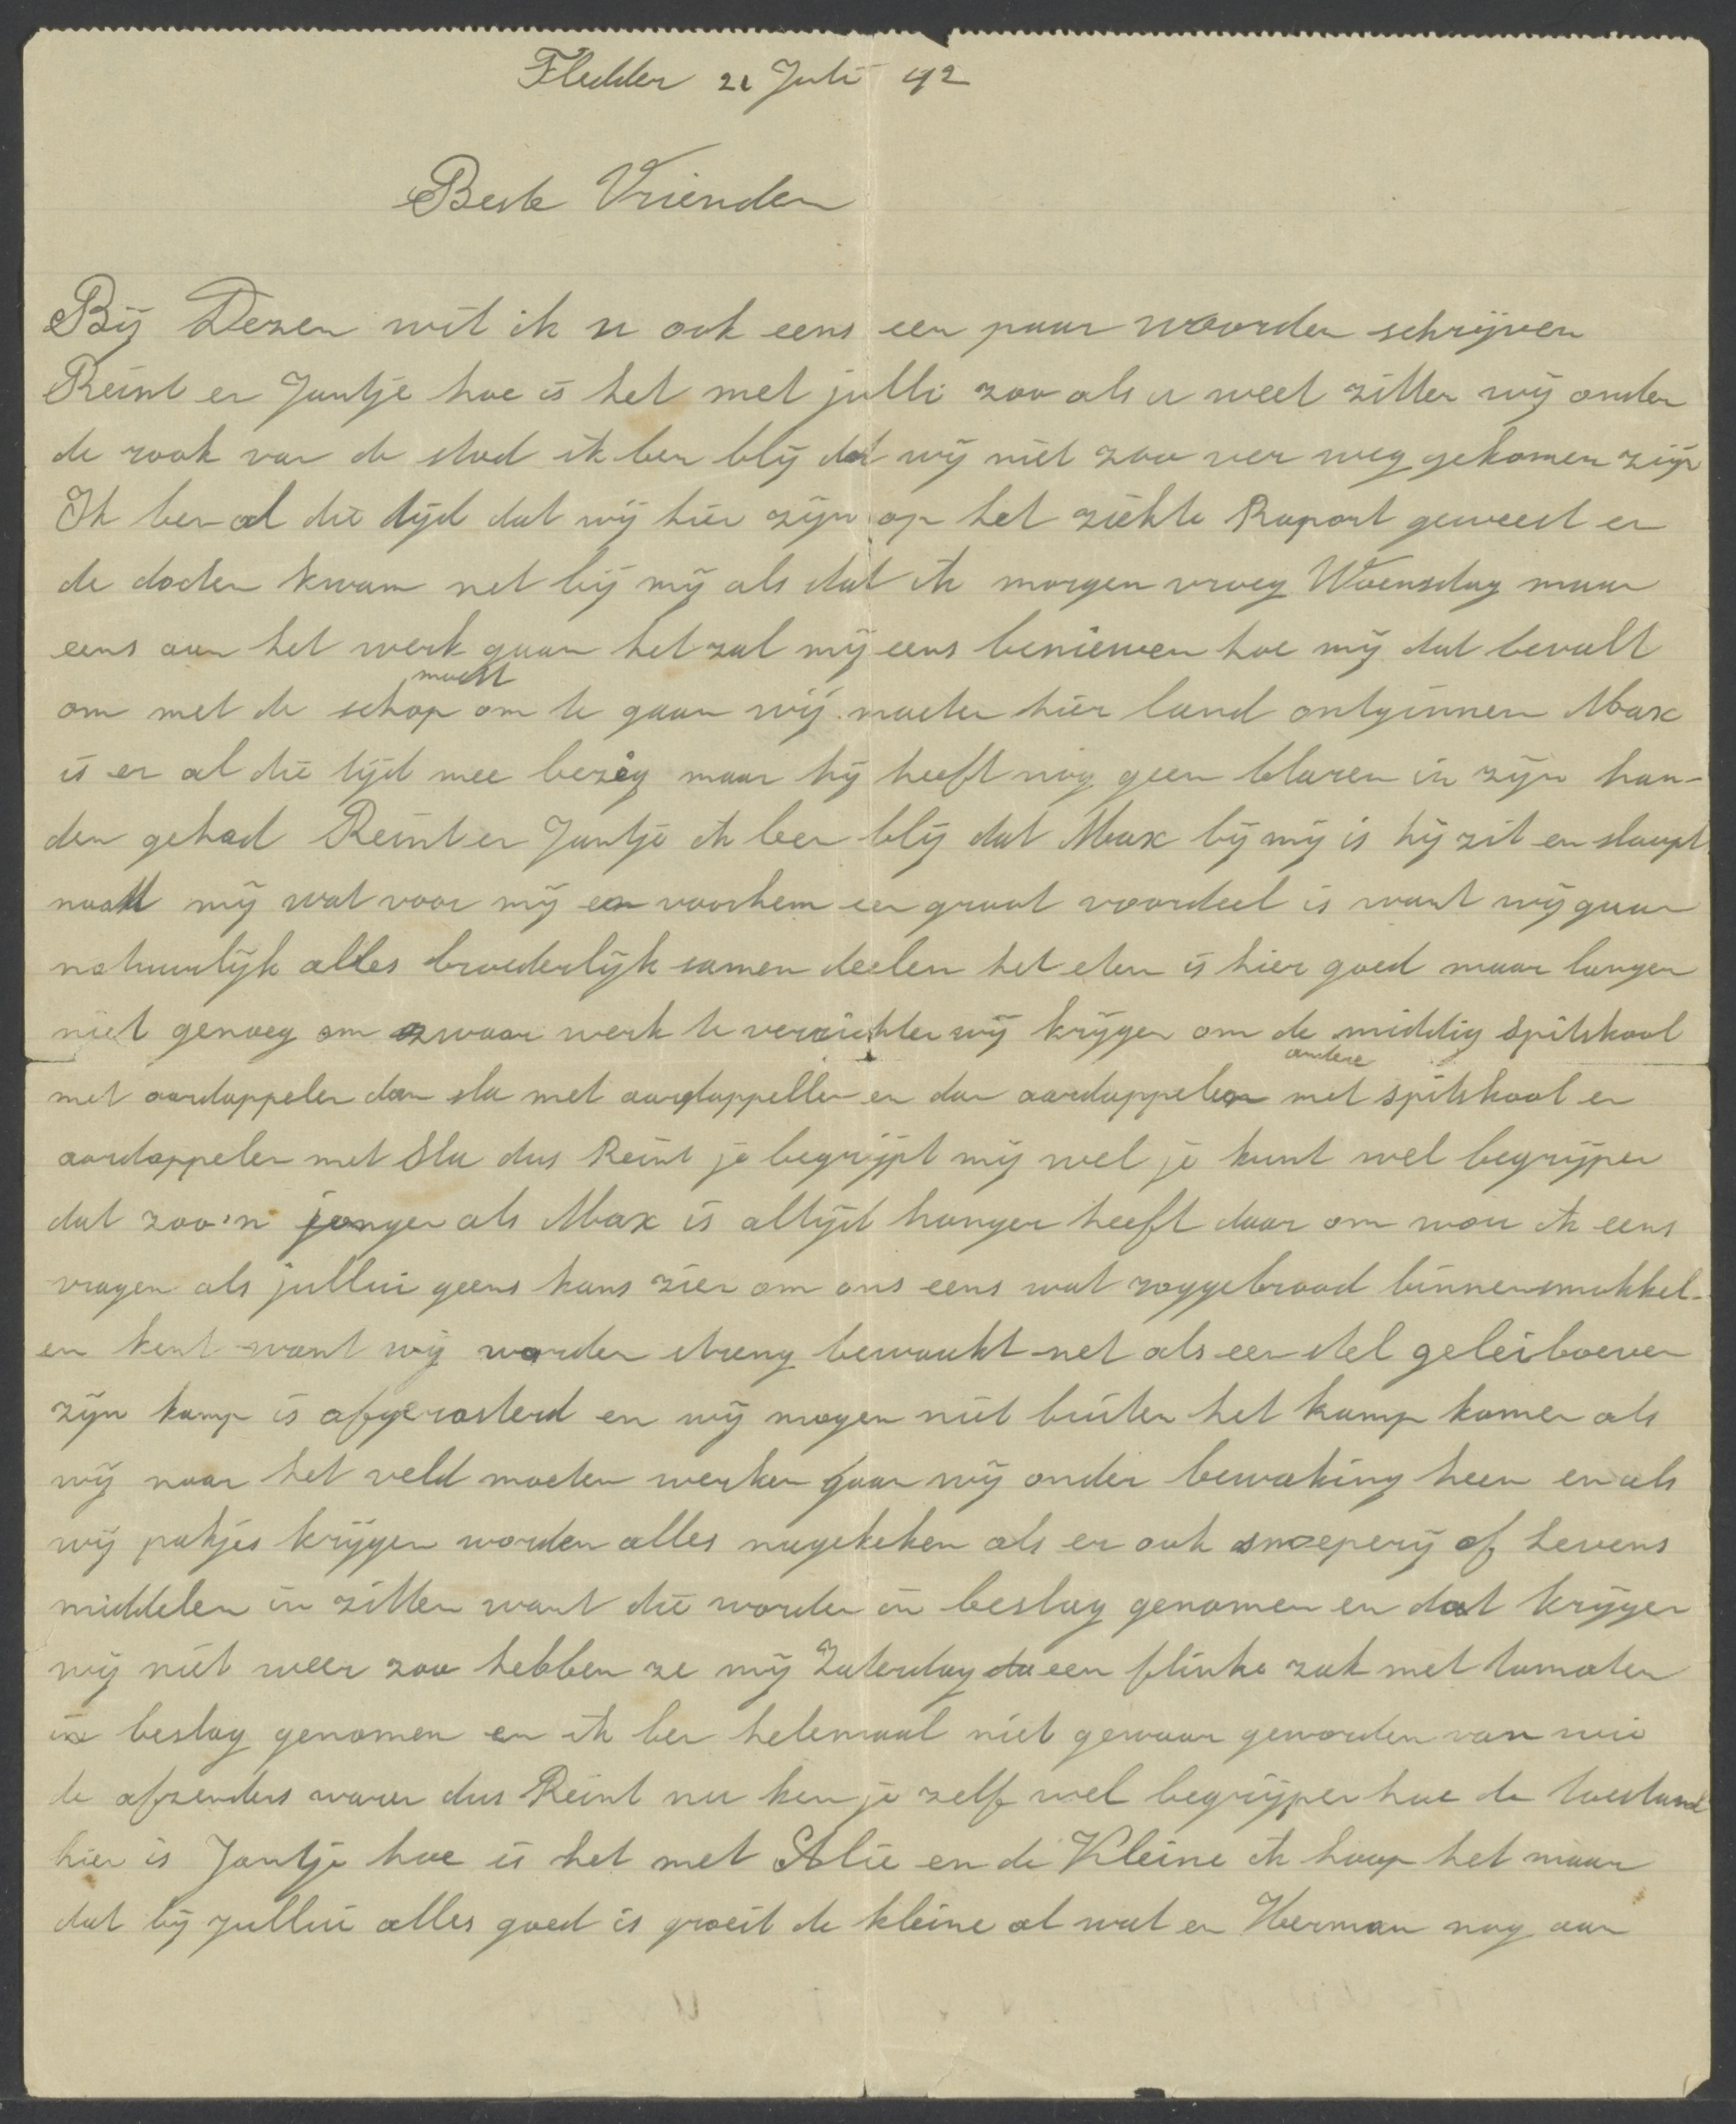 Fledder 21 Juli 42
Beste Vrienden
Bij Dezen wil ik u ook eens een paar woorden schrijven
Reint en Jantje hoe is het met julli zoo als u weet zitten wij onder
de rook van de stad ik ben blij dat wij niet zoo ver weg gekomen zijn
Ik ben al die tijd dat wij hier zijn op het ziekte Raport geweest en
de docter kwam net bij mij als dat ik morgen vroeg Woensdag maar
eens aan het werk gaan het zal mij eens benieuwen hoe mij dat bevalt
moest
om met de schop om te gaan wij moeten hier land ontginnen Max
is er al die tijd mee bezig maar hij heeft nog geen blaren in zijn han-
den gehad Reint en Jantje ik ben blij dat Max bij mij is hij zit en slaapt
naast mij wat voor mij en voor hem een groot voordeel is want wij gaan
natuurlijk alles broederlijk samen deelen het eten is hier goed maar langen
niet genoeg om zwaar werk te verrichten wij krijgen om de middig spitskool
andere
met aardappelen dan sla met aardappellen en dan aardappelen met spitskool en
aardappelen met Sla dus Reint je begrijpt mij wel je kunt wel begrijpen
dat zoo'n jongen als Max is altijd honger heeft daar om wou ik eens
vragen als jullui geens kans zien om ons eens wat roggebrood binnensmokkel-
en kent want wij worden streng bewaakt net als een stel geleiboeven
zijn kamp is afgerasterd en wij mogen niet buiten het kamp komen als
wij naar het veld moeten werken gaan wij onder bewaking heen en als
wij pakjes krijgen worden alles nagekeken als er ook snoeperij of Levens
middelen in zitten want die worden in beslag genomen en dat krijgen
wij niet weer zoo hebben ze mij Zaterdag een flinke zak met tomaten
in beslag genomen en ik ben helemaal niet gewaar geworden van wie
de afzenders waren dus Reint nu ken je zelf wel begrijpen hoe de toestand
hier is Jantje hoe is het met Alie en de Kleine ik hoop het maar
dat bij jullui alles goed is groeit de kleine al wat en Herman nog aan